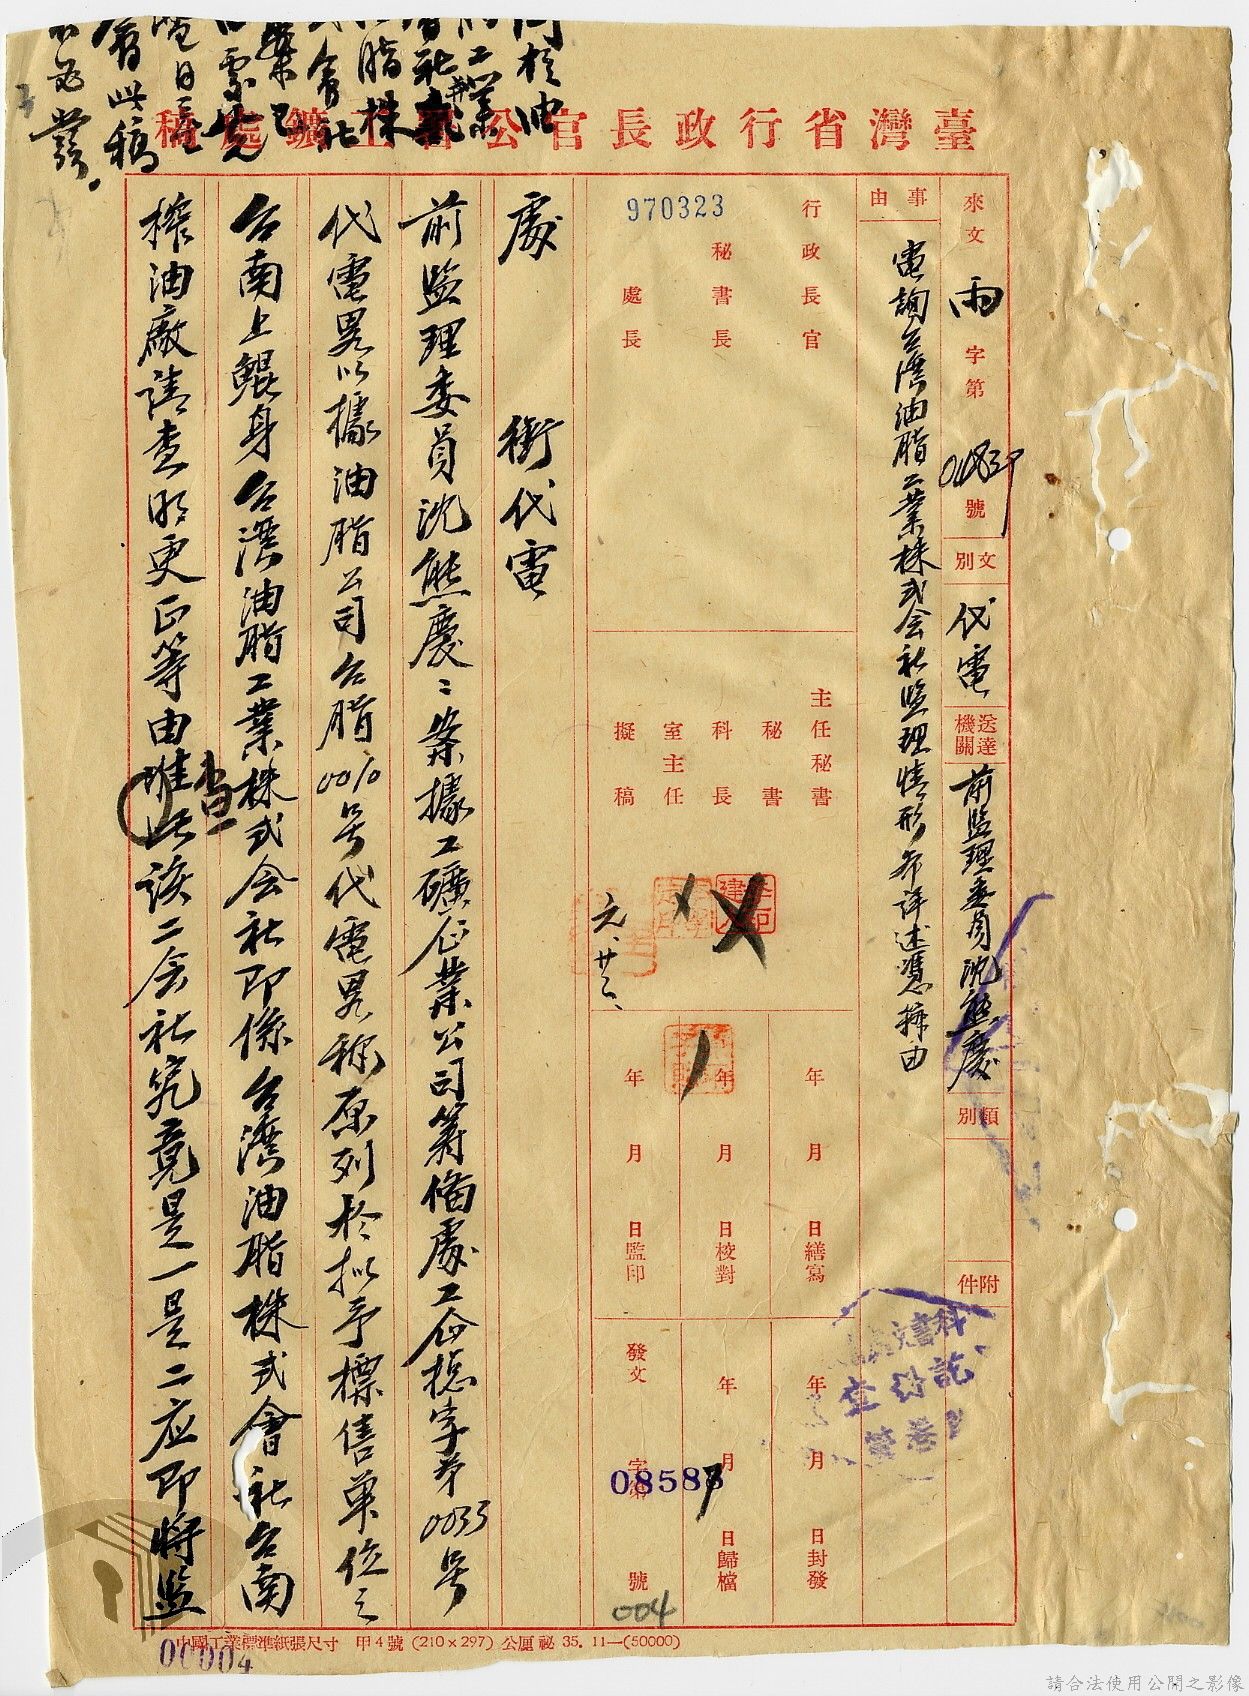 臺灣省行政長官公署工鑛處稿
來文 雨 字第 號
文別 代電
送達機關 前監理委員沈熊慶
類別
附件
事由
電詢台灣油脂工業株式会社監理情形希詳述憑辦由
行政長官
秘書長
處長
970323
主任秘書
秘書
科長
室主任
擬稿
元、廿三、
年 月 日繕寫
年 月 日校對
年 月 日監印
年 月 日封發
年 月 日歸檔
發文 字第 號
08587
004
處 銜代電
前監理委員沈熊慶:案據工礦企業公司籌備處工企總字第0035号
代電畧以據油脂公司台脂0010号代電畧称原列於拟予標售單位之
台南上鯤身台湾油脂工業株式会社即係台湾油脂株式會社台南
榨油廠請查明更正等由
查
該二会社究竟是一是二应即將監
會此稿
不必發。
中國工業標準紙張尺寸 甲4號 (210×297) 公厘 秘 35. 11—(50000)
00004
請合法使用公開之影像